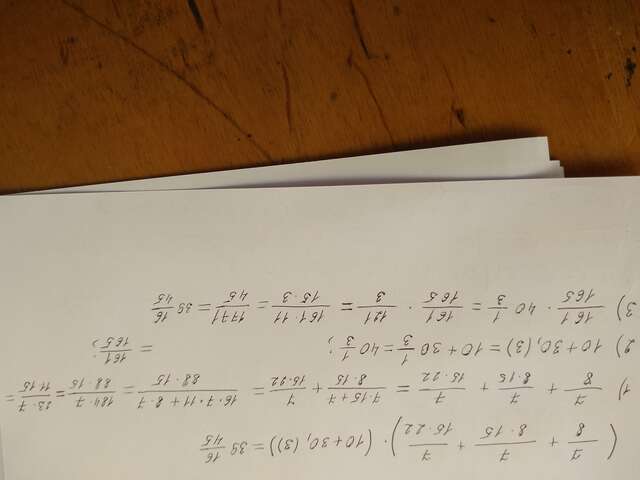 (7/8 + 7/(8·15) + 7/(15·22)) · (10+30,(3)) = 39 16/45
1) 7/8 + 7/(8·15) + 7/(15·22) = (7·15+7)/(8·15) + 7/(15·22) = (16·7·11+8·7)/(88·15) = (184·7)/(88·15) = (23·7)/(11·15) =
= 161/165;
2) 10+30,(3) = 10+30 1/3 = 40 1/3;
3) 161/165 · 40 1/3 = 161/165 · 121/3 = (161·11)/(15·3) = 1771/45 = 39 16/45